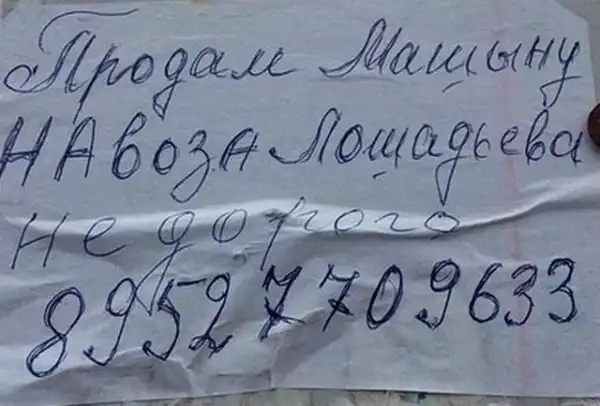 Продам Машыну
НАвоза Лошадьева
не дорого
89527709633